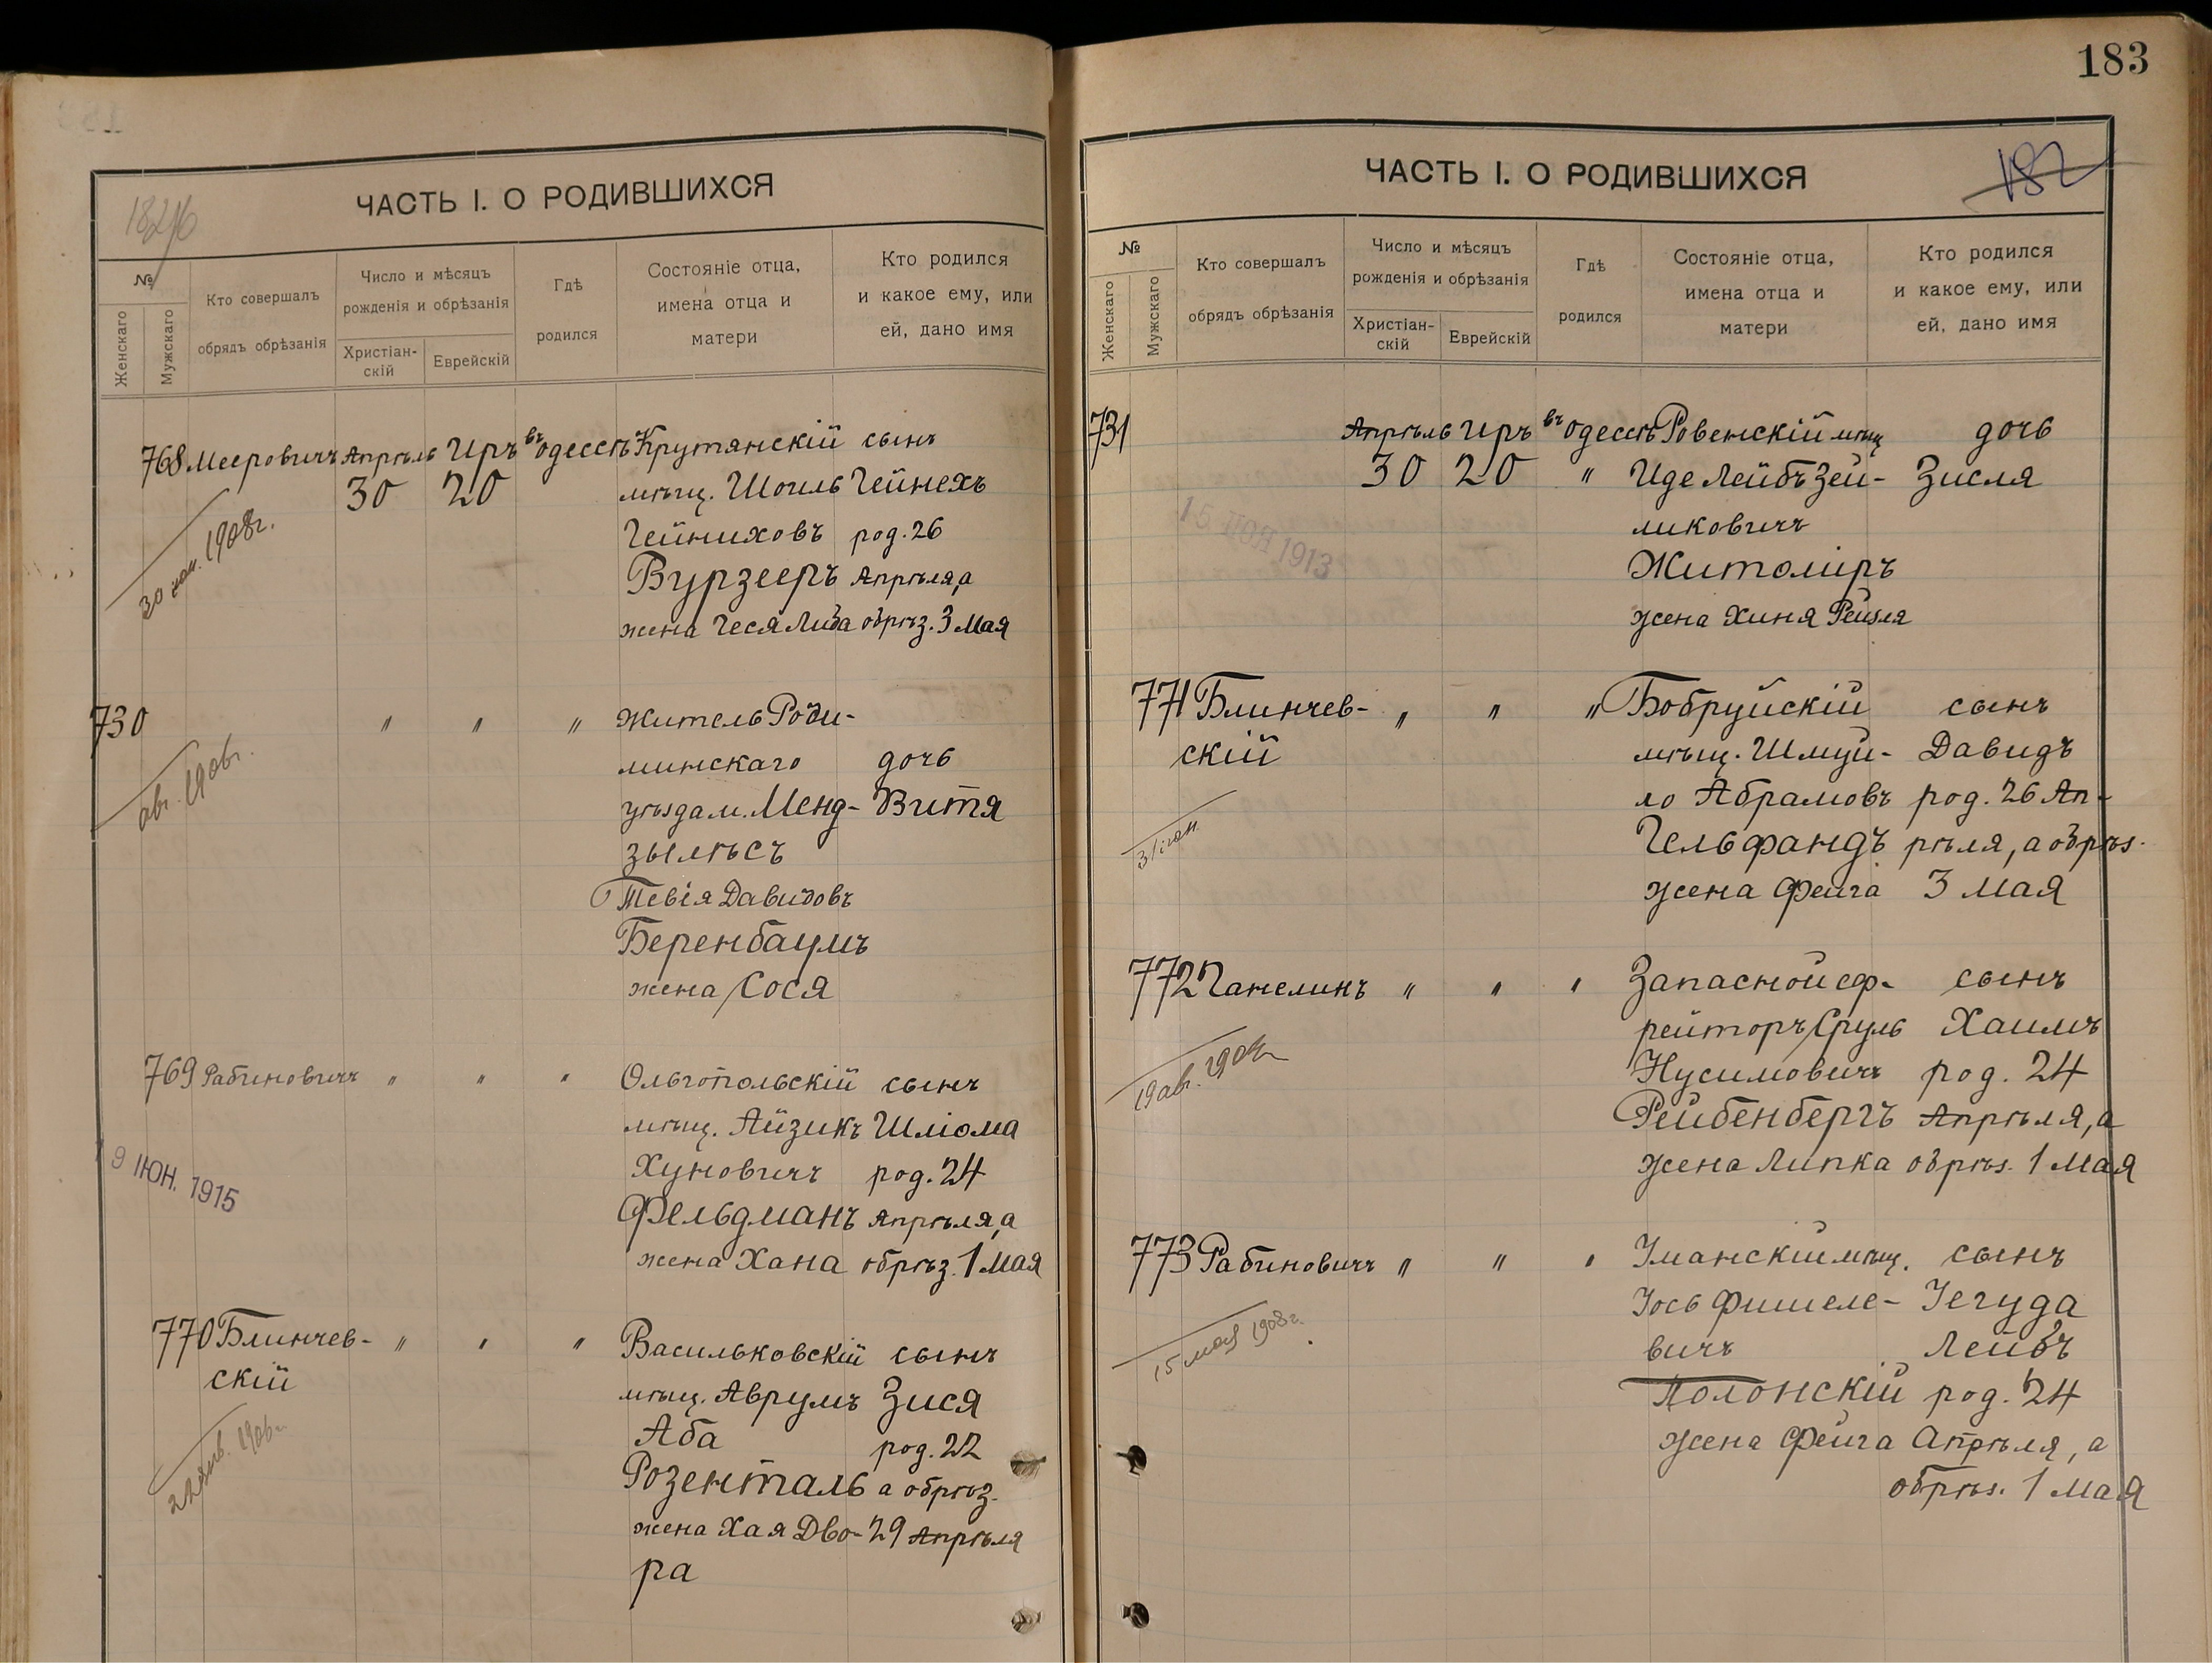 183
ЧАСТЬ I. О РОДИВШИХСЯ
№
Женскаго
Мужскаго
Кто совершалъ
обрядъ обрѣзанія
Число и мѣсяцъ
рожденія и обрѣзанія
Христіан-
скій
Еврейскій
Гдѣ
родился
Состояніе отца,
имена отца и
матери
Кто родился
и какое ему, или
ей, дано имя
768 Мееровичъ Апрѣль Иръ въ Одессѣ Крутянскій сынъ
30 20 мѣщ. Шоиль Гейнехъ
Гейниховъ род. 26
Вурзееръ Апрѣля, а
жена Геся Либа обрѣз. 3 Мая
1908г.
730 " " " житель Роди-
минскаго дочь
уѣзда м. Менд- Витя
зылѣсъ
Тевія Давидовъ
Беренбаумъ
жена Сося
авг. 1906г.
769 Рабиновичъ " " " Ольгопольскій сынъ
мѣщ. Айзикъ Шліома
Хуновичъ род. 24
Фельдманъ Апрѣля, а
жена Хана обрѣз. 1 Мая
19 ІЮН. 1915
770 Блинчев- " " " Васильковскій сынъ
скій мѣщ. Аврумъ Зися
Аба род. 22
Розенталь а обрѣз.
жена Хая Дво- 29 Апрѣля
ра
ЧАСТЬ I. О РОДИВШИХСЯ
182
№
Женскаго
Мужскаго
Кто совершалъ
обрядъ обрѣзанія
Число и мѣсяцъ
рожденія и обрѣзанія
Христіан-
скій
Еврейскій
Гдѣ
родился
Состояніе отца,
имена отца и
матери
Кто родился
и какое ему, или
ей, дано имя
731 Апрѣль Иръ въ Одессѣ Ровенскій мѣщ дочь
30 20 " Иде Лейбъ Зей- Зисля
ликовичъ
Житоміръ
жена Хиня Рейзля
1913
771 Блинчев- " " " Бобруйскій сынъ
скій мѣщ. Шмуй- Давидъ
ло Абрамовъ род. 26 Ап-
Гельфандъ рѣля, а обрѣз.
жена Фейга 3 Мая
772 Ганелинъ " " " Запасной еф- сынъ
рейторъ Сруль Хаимъ
Нусимовичъ род. 24
Рейбенбергъ Апрѣля, а
жена Липка обрѣз. 1 Мая
19 авг.
773 Рабиновичъ " " " Уманскій мѣщ. сынъ
Іось Фишеле- Іегуда
вичъ Лейбъ
Полонскій род. 24
жена Фейга Апрѣля, а
обрѣз. 1 Мая
15 мая 1908г.